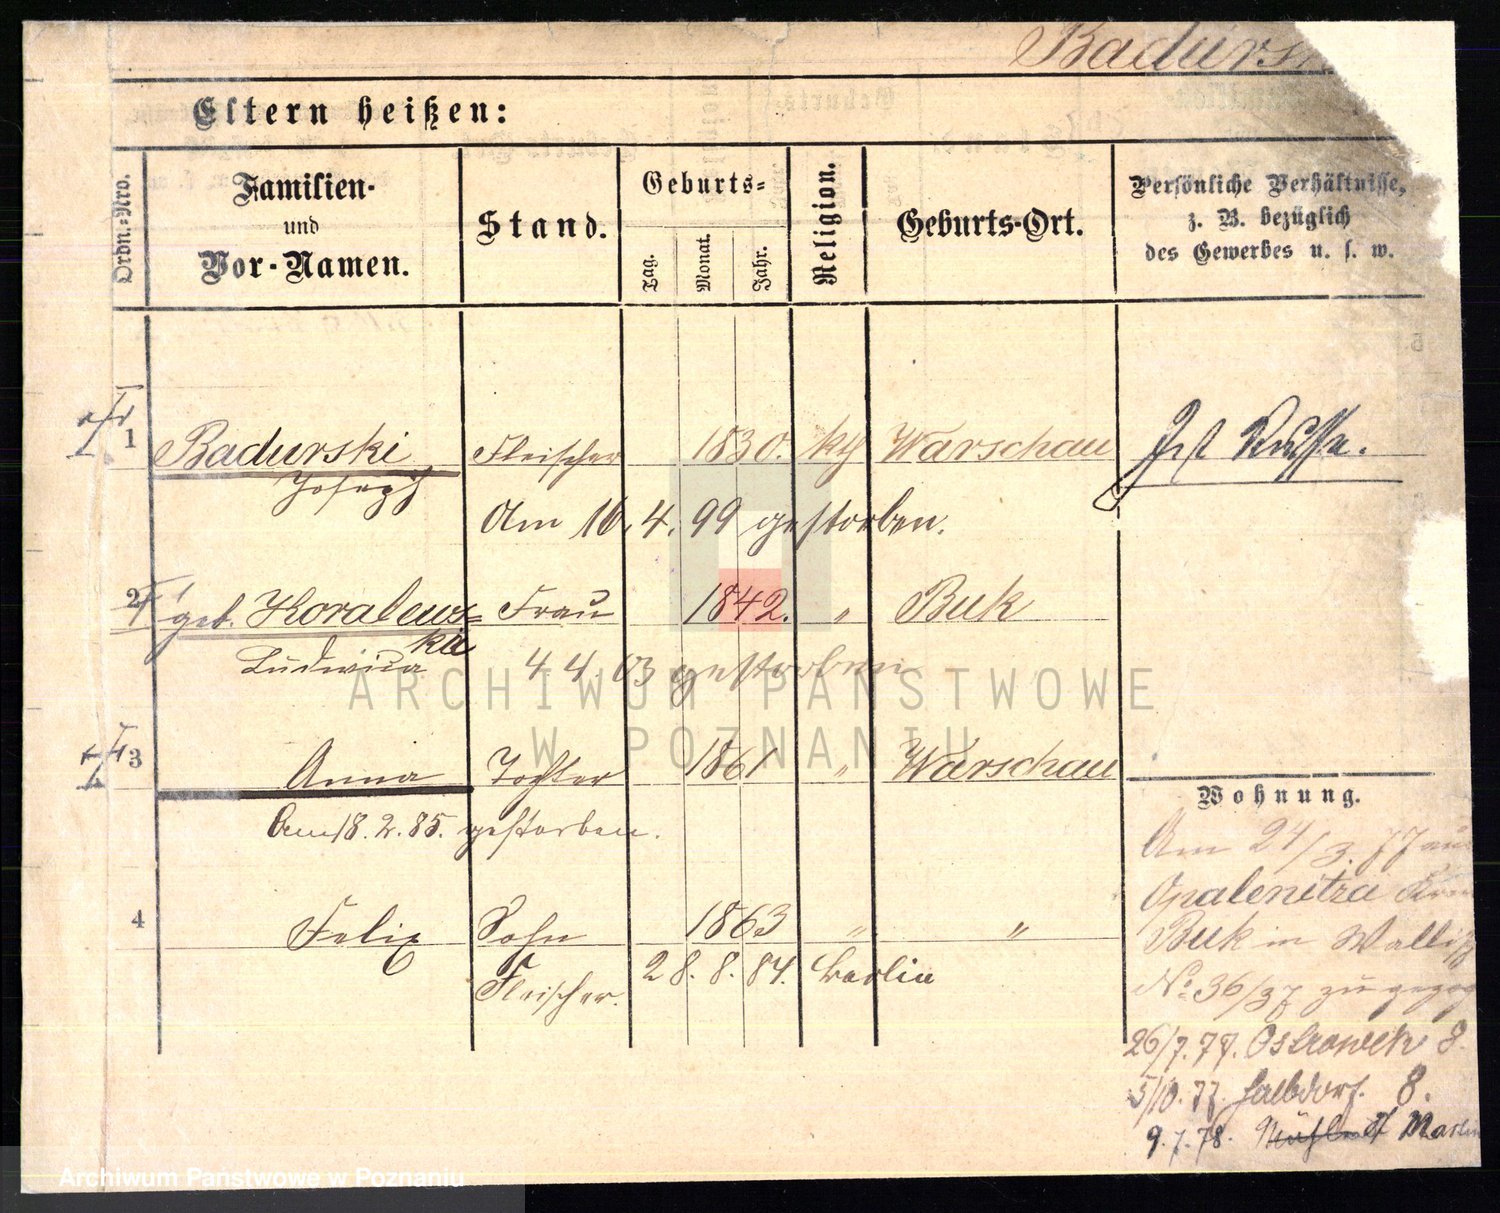 Badurs
Eltern heißen:
Ordn.=Nro.
Familien-
und
Vor-Namen.
Stand.
Geburts=
Tag.
Monat.
Jahr.
Religion.
Geburts-Ort.
Persönliche Verhältnisse,
z. B. bezüglich
des Gewerbes u. s. w.
1 Badurski Fleischer 1830. kth Warschau Ist Russe.
Joseph
Am 16. 4. 99 gestorben.
2 geb. Koralews= Frau 1842. " Buk
kia
Ludwica 4. 4. 03 gestorben
3 Anna Tochter 1861 " Warschau
Am 18. 2. 85. gestorben.
4 Felix Sohn 1863 " "
Fleischer. 28. 8. 84. Berlin
Wohnung.
Am 24/3. 77 aus
Opalenitza
Buk in Wallisch
No 36/37 zugezog
26/7. 77. Ostrowek 8.
5/10. 77. Halbdorf. 8.
9. 7. 78.
ARCHIWUM PAŃSTWOWE
W POZNANIU
Archiwum Państwowe w Poznaniu